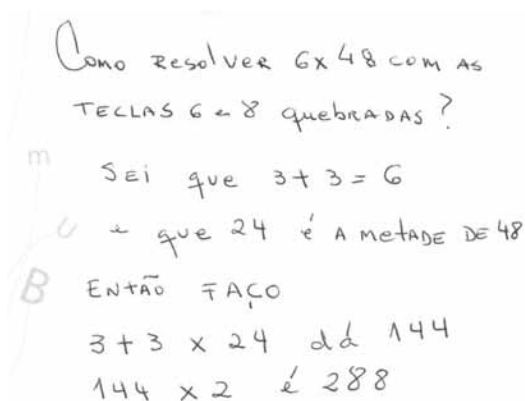 Como Resolver 6x48 com as
teclas 6 e 8 quebradas?
Sei que 3+3=6
e que 24 é a metade de 48
Então faço
3+3 x 24 dá 144
144 x 2 é 288
m
u
B